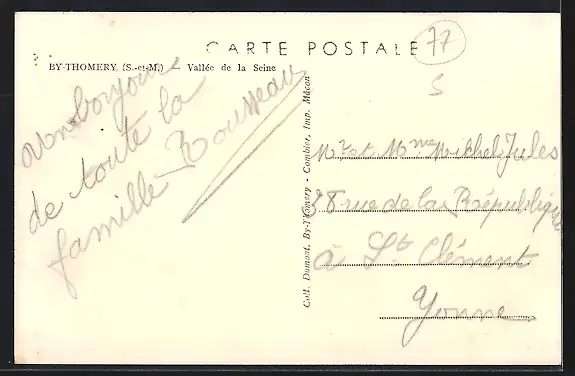 CARTE POSTALE
77
S
BY-THOMERY (S.-et-M.) — Vallée de la Seine
un bonjour
de toute la
famille Rousseau
Coll. Dumont, By-Thomery - Combier, Imp. Mâcon
Mr et Mme Michel Jules
28 rue de la République
à St Clément
Yonne